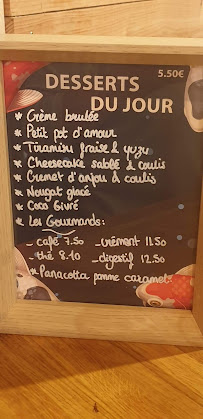 5.50€
DESSERTS
DU JOUR
* Crème brulée
* Petit pot d'amour
* Tiramisu fraise & yuzu
* Cheesecake sablé & coulis
* Cremet d'anjou & coulis
* Nougat glacé
* Coco Givré
* Les Gourmands:
- café 7.50 - crément 11.50
- thé 8.10 - digestif 12.50
* Panacotta pomme caramel